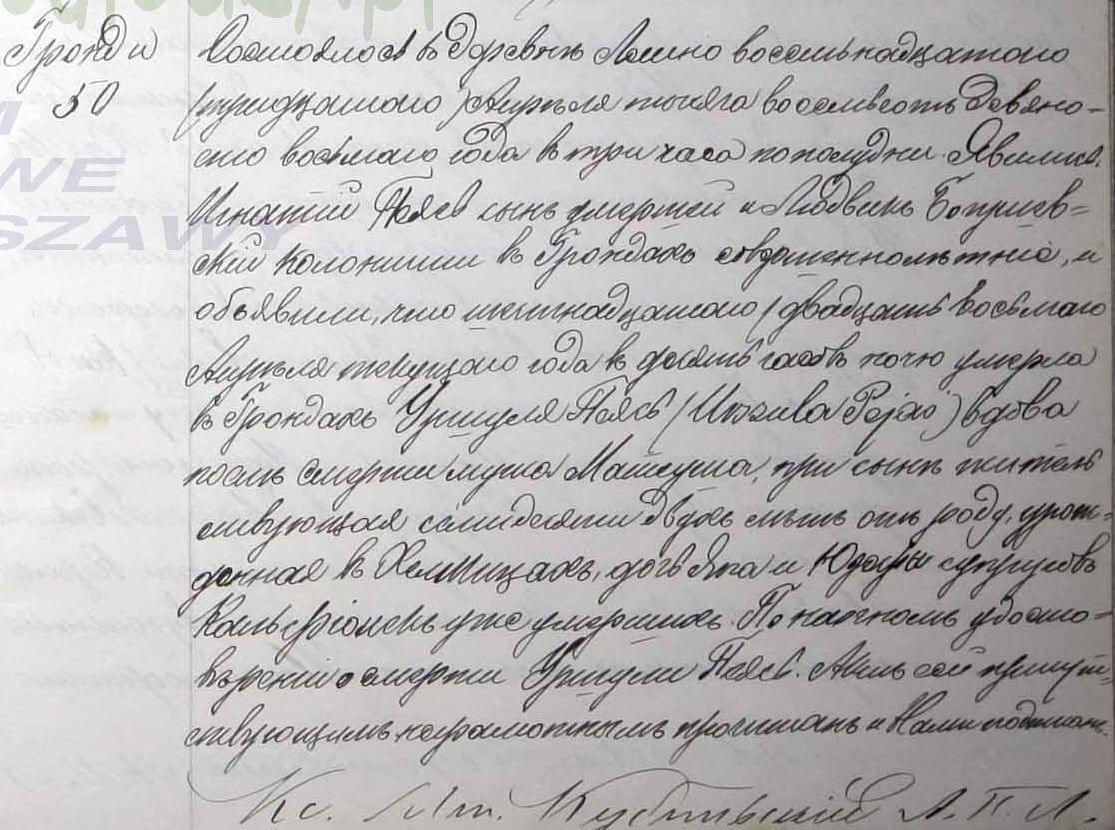 Гронды
50
Состоялось въ деревнѣ Ломно восемьнадцатаго
/тридцатаго/ Апрѣля тысяча восемьсотъ девяно-
сто восьмаго года въ три часа по полудни. Явились
Игнатій Поясъ сынъ умершей и Людвикъ
колонисты въ Грондахъ совершеннолѣтніе, и
объявили, что шестнадцатаго / двадцать восьмаго
Апрѣля текущаго года въ десять часовъ ночю умерла
въ Грондахъ Уршуля Поясъ (Urszula Pojas) вдова
послѣ смерти мужа Матеуша, при сынѣ житель
ствующая семидесяти двухъ лѣтъ отъ роду, урож-
денная въ дочь Яна и супруговъ
уже умершихъ. По настномъ удосто-
вѣреніи о смерти Уршули Поясъ. Актъ сей присут-
ствующимъ неграмотнымъ прочитанъ и Нами подписанъ.
Кс.